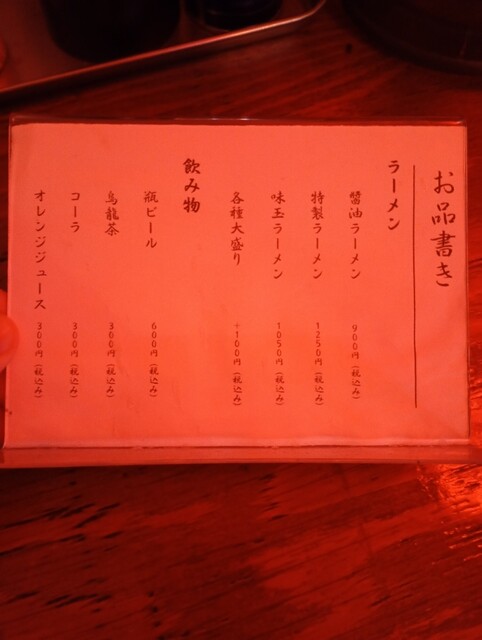 お品書き
ラーメン
醤油ラーメン 900円(税込み)
特製ラーメン 1250円(税込み)
味玉ラーメン 1050円(税込み)
各種大盛り +100円(税込み)
飲み物
瓶ビール 600円(税込み)
烏龍茶 300円(税込み)
コーラ 300円(税込み)
オレンジジュース 300円(税込み)